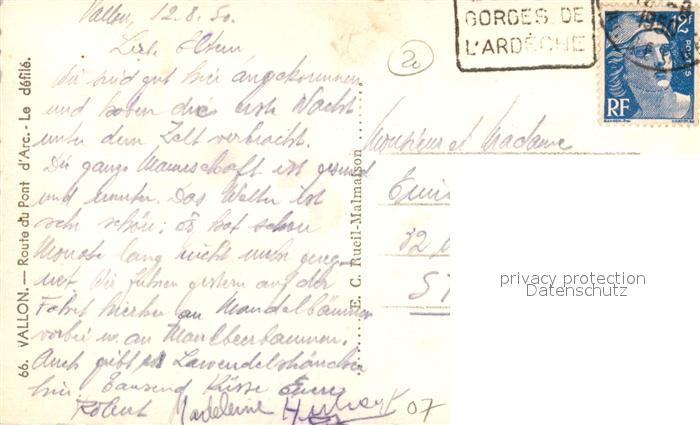 Vallon, 12.8.50.
Liebe Eltern
Wir sind gut hier angekommen
und haben die erste Nacht
unter dem Zelt verbracht.
Die ganze Mannschaft ist gesund
und munter. Das Wetter ist
sehr schön; es hat schon
Monate lang nicht mehr gereg-
net. Wir fuhren gestern auf der
Fahrt hierher an Mandelbäumen
vorbei u. an Maulbeerbäumen.
Auch gibt es Lavendelsträucher
hier. Tausend Küsse Eure
Robert Madeleine
66. VALLON. — Route du Pont d'Arc. - Le défilé.
E. C. Rueil-Malmaison
20
GORGES DE
L'ARDÈCHE
1950
12F
POSTES
RF
Monsieur et Madame
32
ST
privacy protection
Datenschutz
07